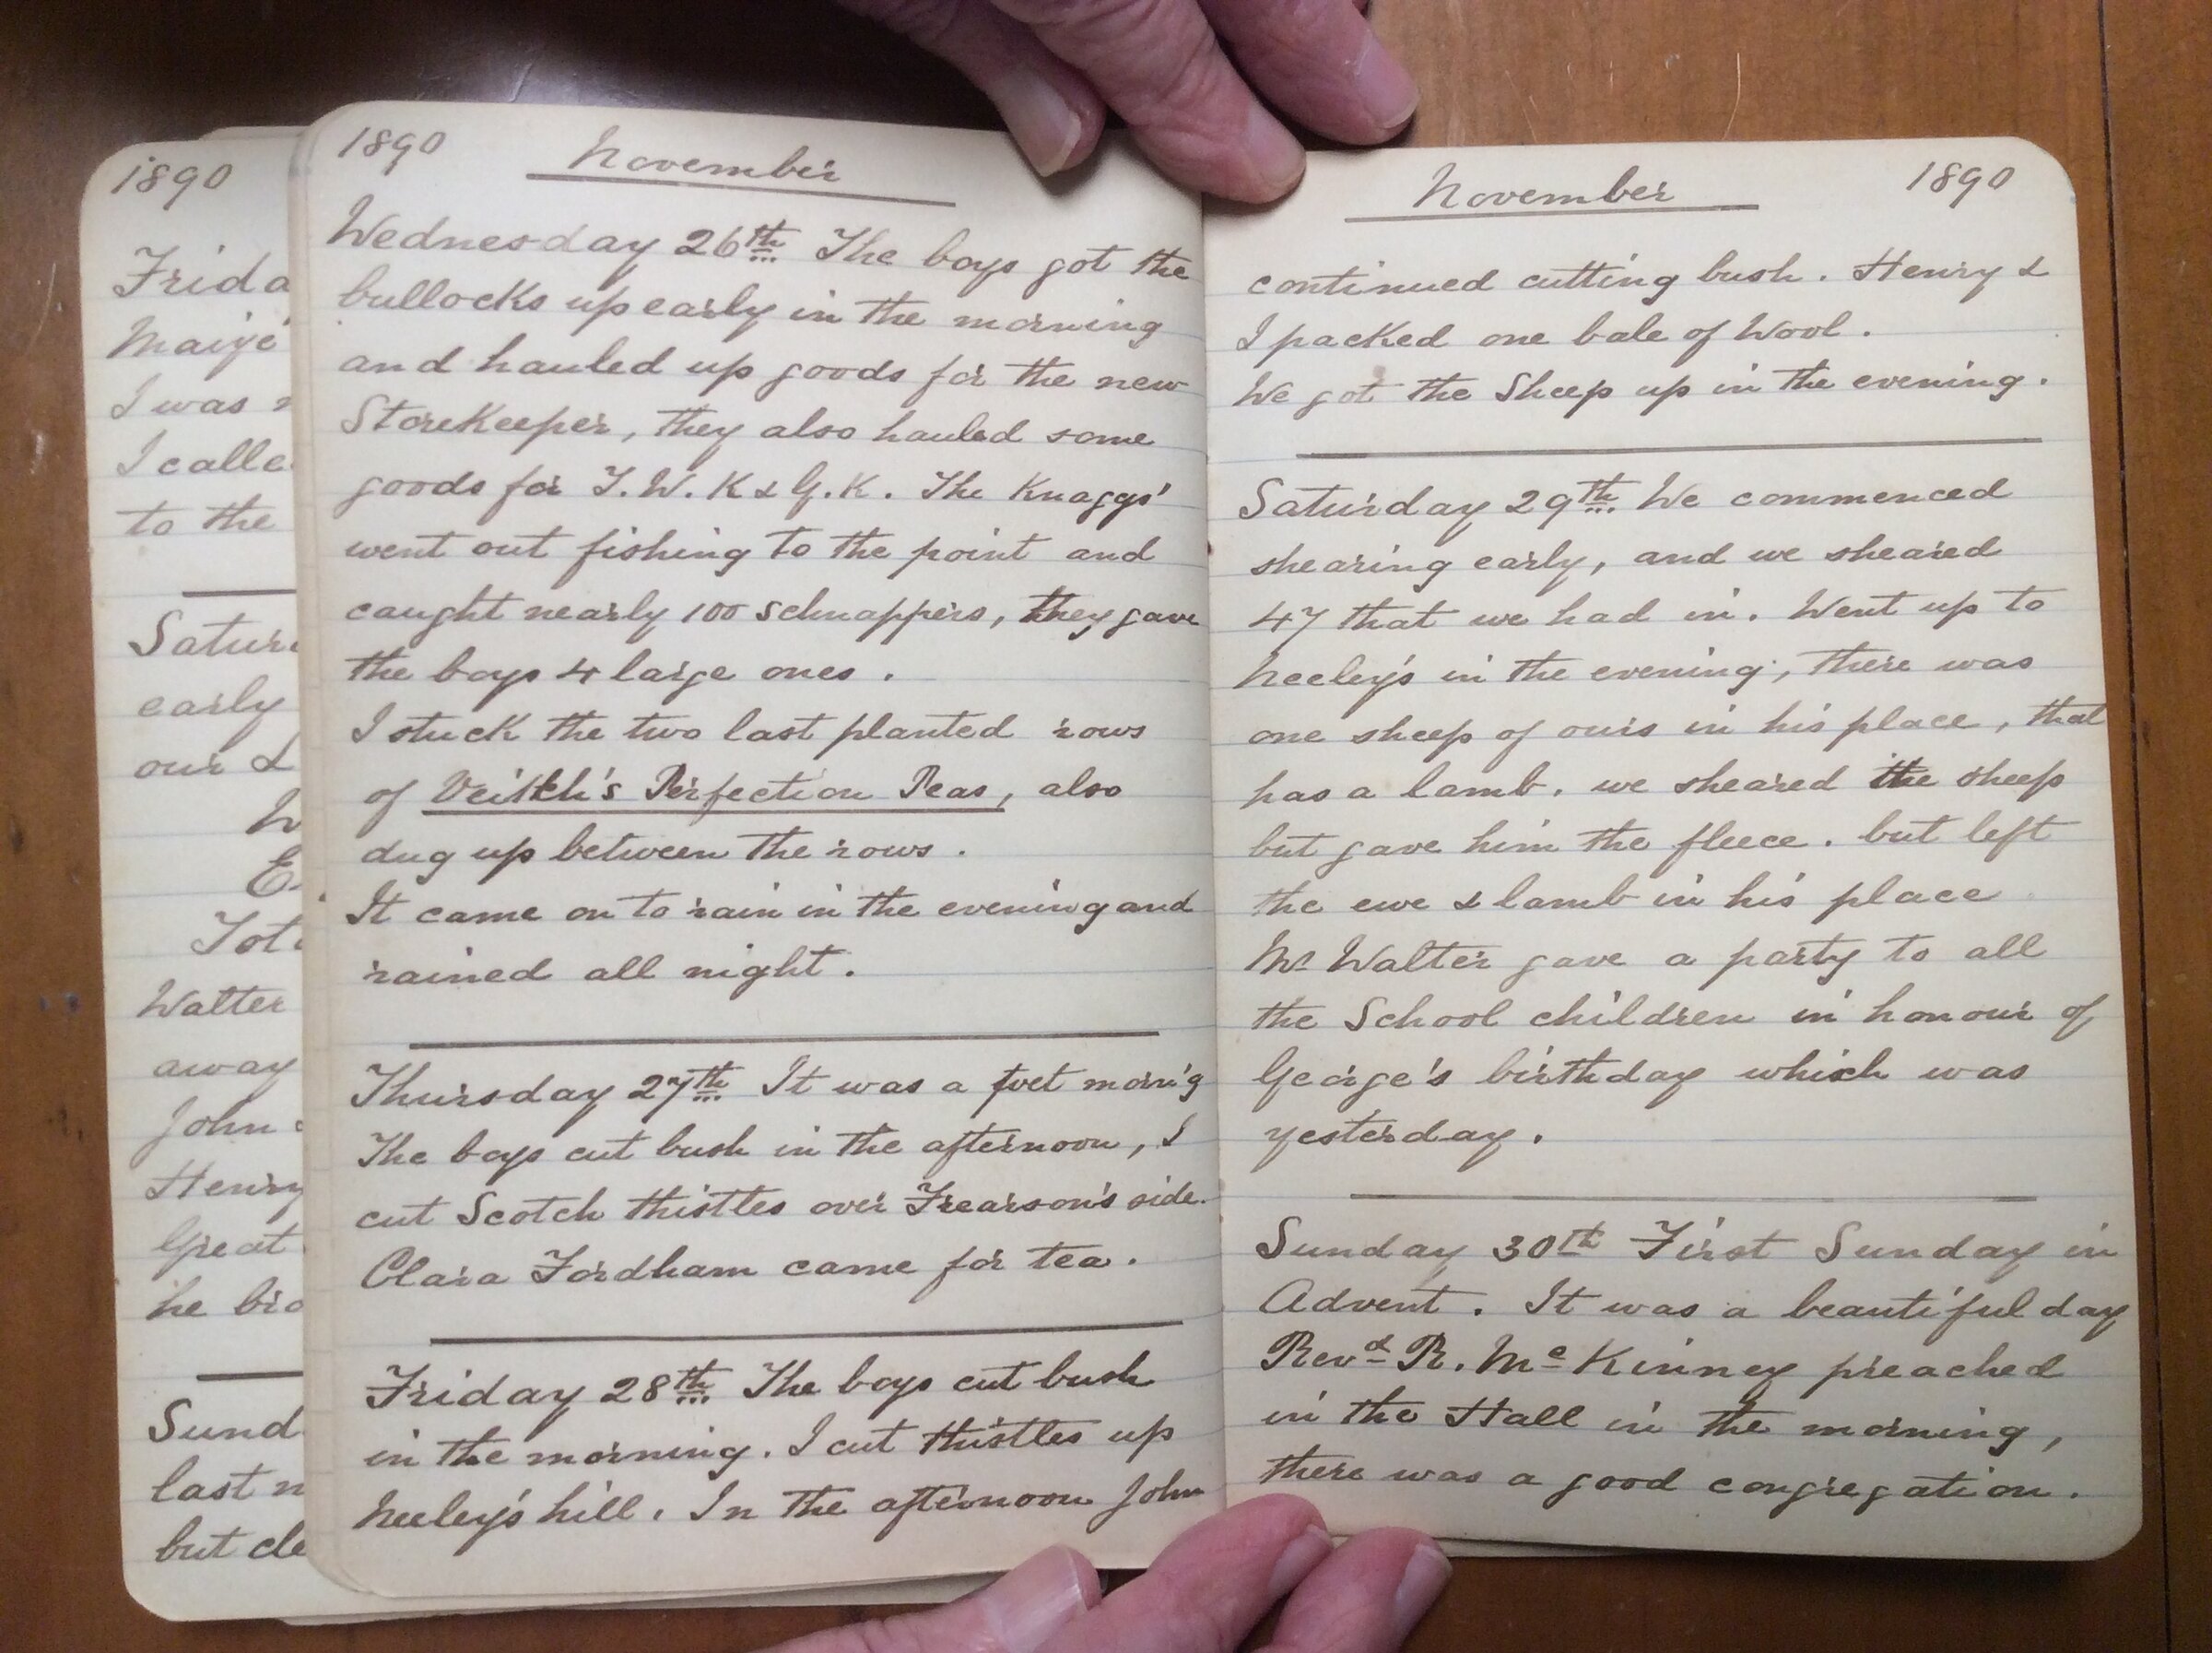 1890
Frida
Maize
I was
I calle
to the
Satur
early
our &
W
E
Tot
Walter
away
John
Henry
Great
he bro
Sund
last n
but cle
1890 November
Wednesday 26th The boys got the
bullocks up early in the morning
and hauled up goods for the new
Storekeeper, they also hauled some
goods for T. W. K & G. K. The Knaggs'
went out fishing to the point and
caught nearly 100 Schnappers, they gave
the boys 4 large ones.
I stuck the two last planted rows
of Veitch's Perfection Peas, also
dug up between the rows.
It came on to rain in the evening and
rained all night.
Thursday 27th It was a wet morn'g
The boys cut bush in the afternoon, I
cut Scotch thistles over Frearson's side.
Clara Fordham came for tea.
Friday 28th The boys cut bush
in the morning. I cut thistles up
Neeley's hill. In the afternoon John
November 1890
continued cutting bush. Henry &
I packed one bale of Wool.
We got the Sheep up in the evening.
Saturday 29th We commenced
shearing early, and we sheared
47 that we had in. Went up to
Neeley's in the evening, there was
one sheep of ours in his place, that
has a lamb. we sheared the sheep
but gave him the fleece. but left
the ewe & lamb in his place
Mr Walter gave a party to all
the School children in honour of
George's birthday which was
yesterday.
Sunday 30th First Sunday in
Advent. It was a beautiful day
Revd R. McKinney preached
in the Hall in the morning,
there was a good congregation.